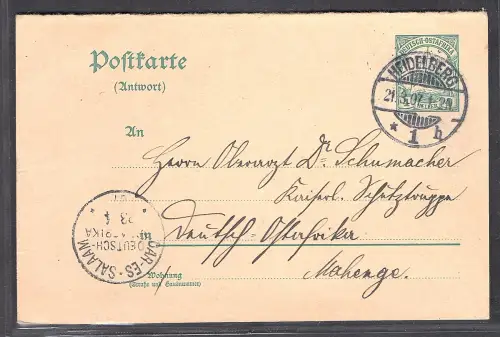 Postkarte
(Antwort)
DEUTSCH-OSTAFRIKA
HEIDELBERG
21.3.07.1-2N
* 1 b
An
Herrn Oberarzt Dr. Schumacher
Kaiserl. Schutztruppe
in
Deutsch-Ostafrika
Mahenge.
Wohnung
(Straße und Hausnummer)
DAR-ES-SALAAM
DEUTSCH-
23 4